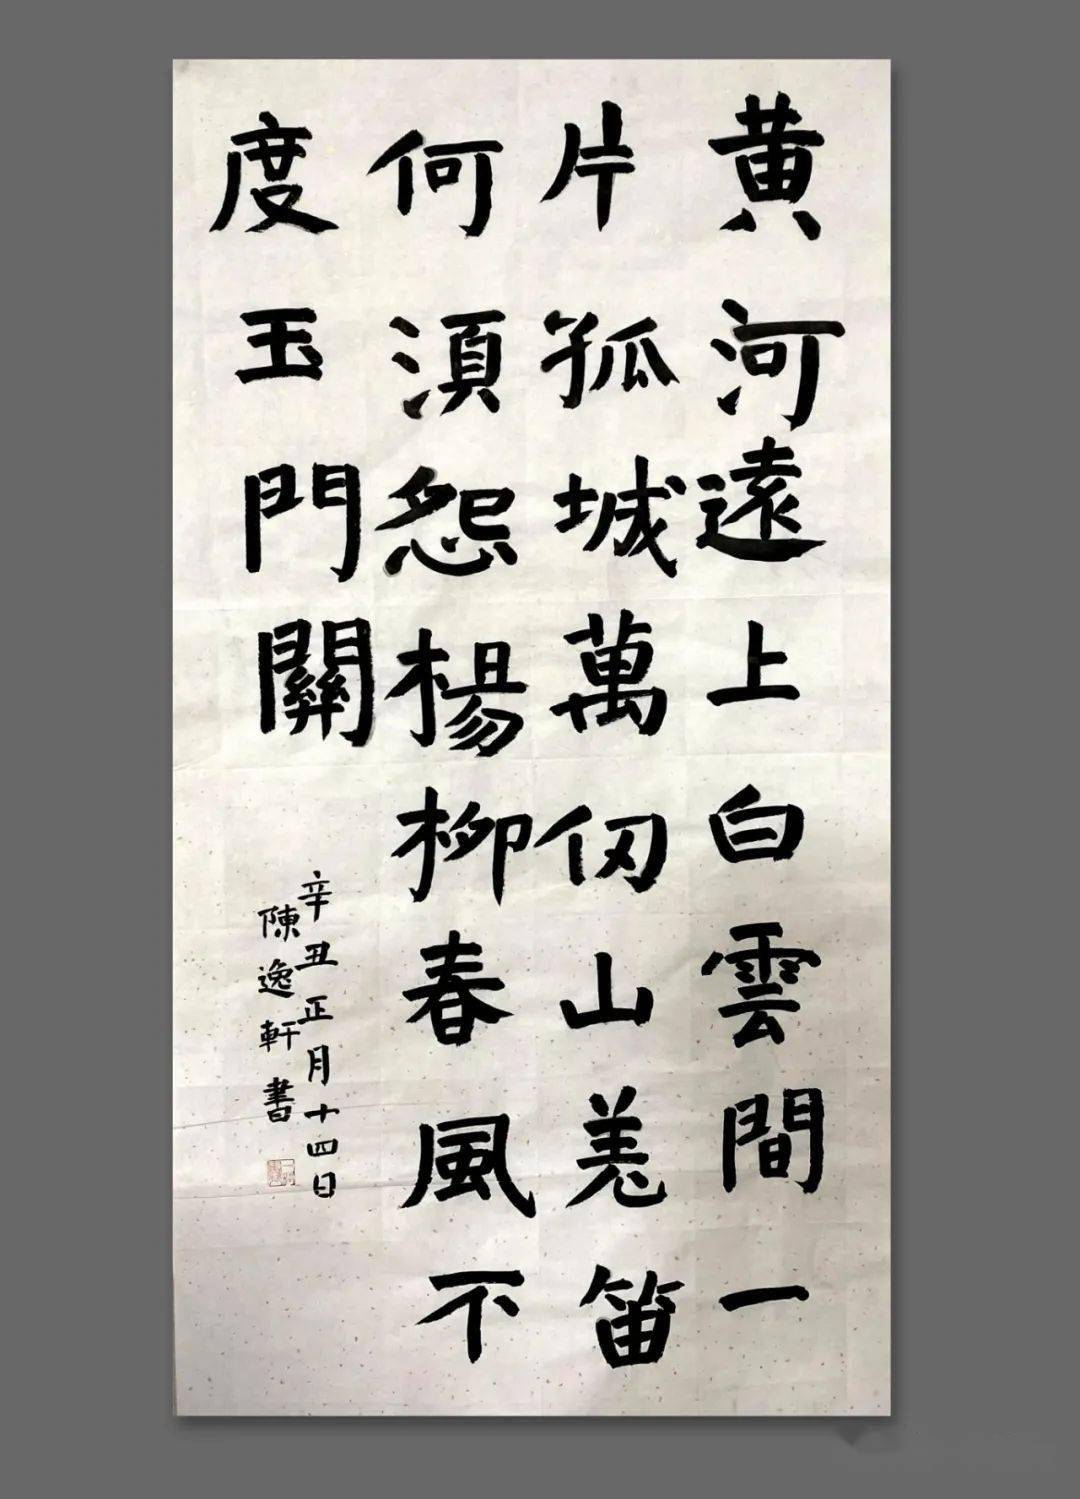 黄河遠上白雲間一
片孤城萬仞山羌笛
何須怨楊柳春風不
度玉門關
辛丑正月十四日
陳逸軒書